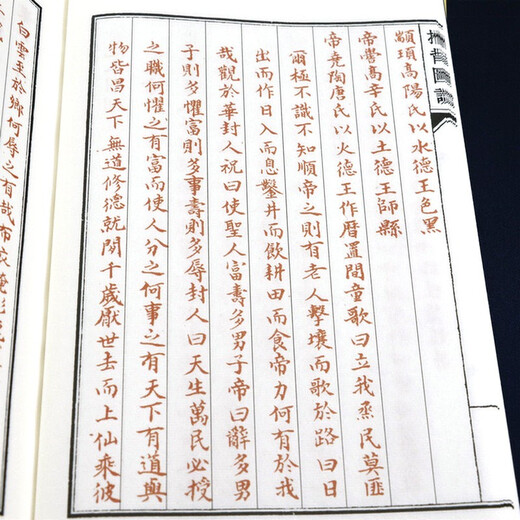 顓頊高陽氏以水德王色黑
帝嚳高辛氏以土德王師縣
帝堯陶唐氏以火德王作曆置閏童歌曰立我烝民莫匪
爾極不識不知順帝之則有老人擊壤而歌於路曰日
出而作日入而息鑿井而飲耕田而食帝力何有於我
哉觀於華封人祝曰使聖人富壽多男子帝曰辭多男
子則多懼富則多事壽則多辱封人曰天生萬民必授
之職何懼之有富而使人分之何事之有天下有道與
物皆昌天下無道修德就閒千歲厭世去而上仙乘彼
白雲至於鄉何辱之有哉布衣